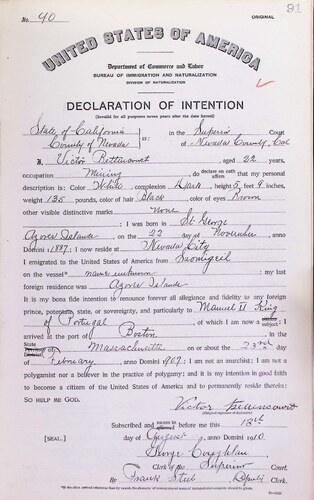 No. 90
ORIGINAL
91
UNITED STATES OF AMERICA
Department of Commerce and Labor
BUREAU OF IMMIGRATION AND NATURALIZATION
DIVISION OF NATURALIZATION
DECLARATION OF INTENTION
(Invalid for all purposes seven years after the date hereof)
State of California
County of Nevada ss: In the Superior Court of Nevada County, Cal
I, Victor, aged 22 years,
occupation Mining, do declare on oath that my personal
description is: Color White, complexion Dark, height 5 feet 9 inches,
weight 135 pounds, color of hair Black, color of eyes Brown
other visible distinctive marks None
I was born in St George
Azores Islands, on the 22 day of November, anno
Domini 1887; I now reside at Nevada City
I emigrated to the United States of America from
on the vessel* name unknown; my last
foreign residence was Azores Islands
It is my bona fide intention to renounce forever all allegiance and fidelity to any foreign
prince, potentate, state, or sovereignty, and particularly to Manuel II King
of Portugal, of which I am now a subject; I
arrived at the port of Boston, in the
State of Massachusetts on or about the 23rd day
of February, anno Domini 1907; I am not an anarchist; I am not a
polygamist nor a believer in the practice of polygamy; and it is my intention in good faith
to become a citizen of the United States of America and to permanently reside therein:
SO HELP ME GOD.
Victor
(Original signature of declarant)
Subscribed and sworn to before me this 18th
[SEAL.] day of August, anno Domini 1910
George Coughlan
Clerk of the Superior Court.
By Frank Steel, Deputy Clerk.